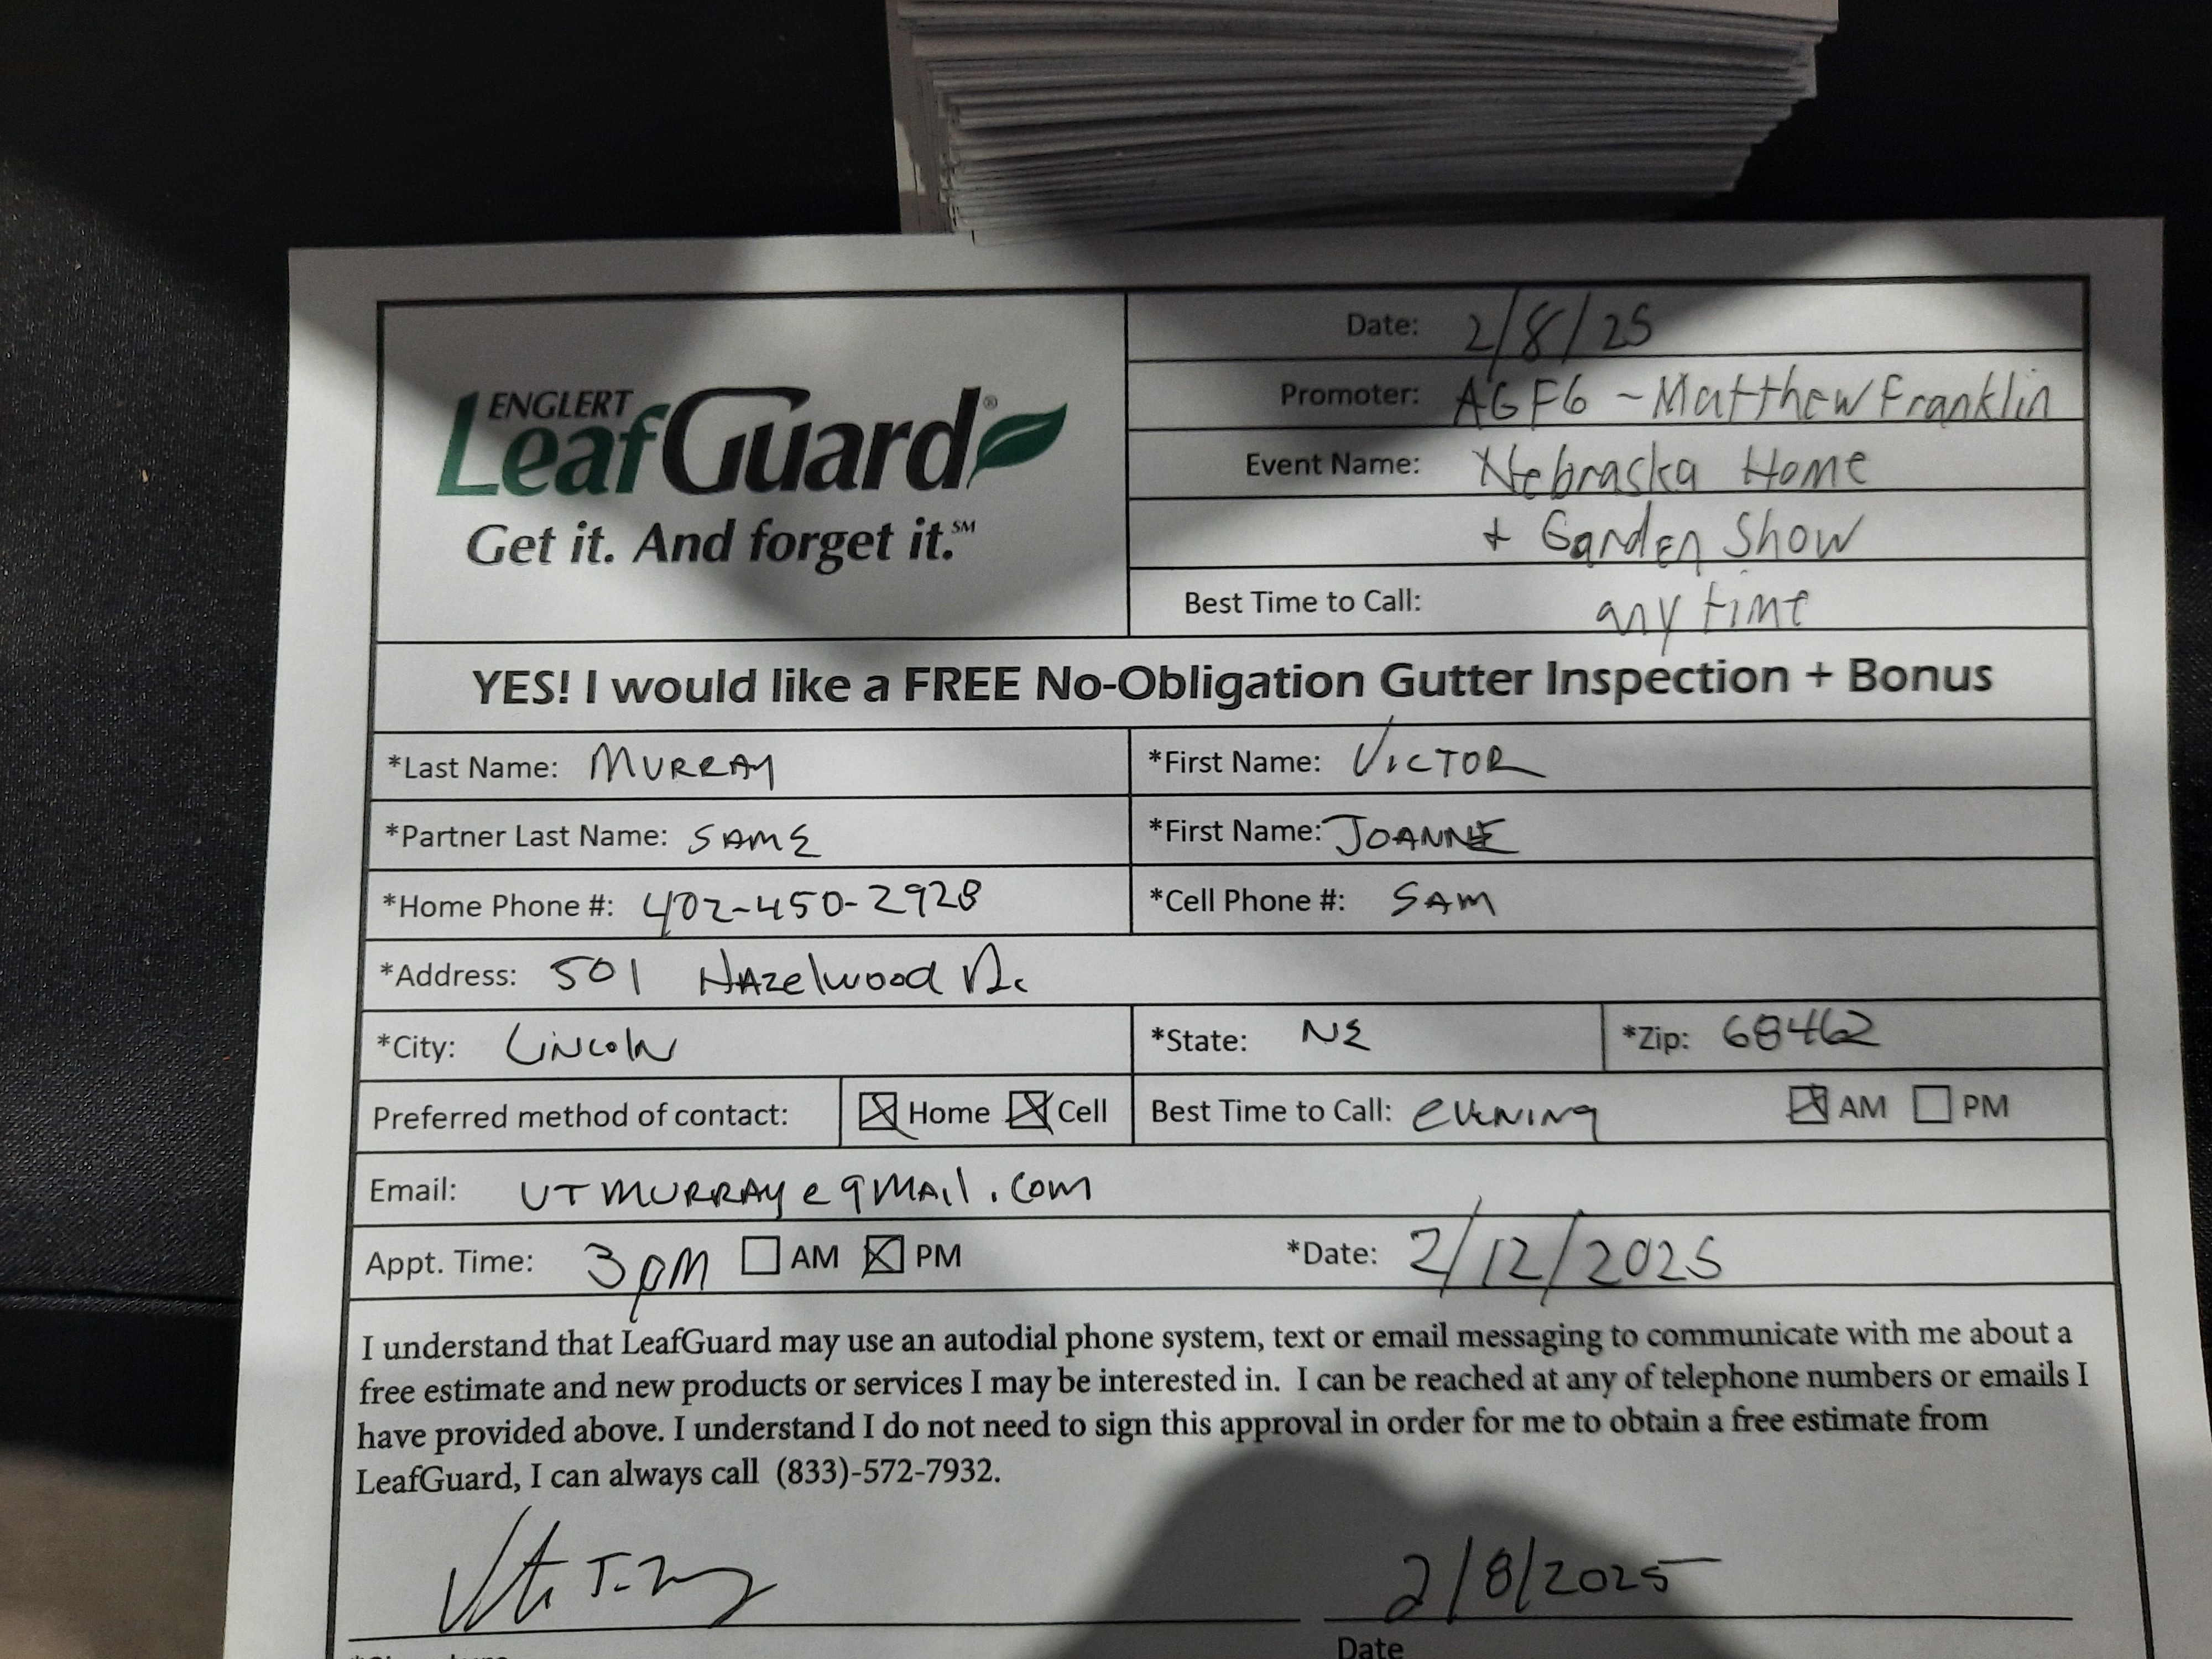 ENGLERT
LeafGuard®
Get it. And forget it.℠
Date: 2/8/25
Promoter: AGF6 ~ Matthew Franklin
Event Name: Nebraska Home
+ Garden Show
Best Time to Call: any time
YES! I would like a FREE No-Obligation Gutter Inspection + Bonus
*Last Name: MURRAY *First Name: VICTOR
*Partner Last Name: SAME *First Name: JOANNE
*Home Phone #: 402-450-2928 *Cell Phone #: SAM
*Address: 501 HAZelwood Dr
*City: LiNcolN *State: NE *Zip: 68462
Preferred method of contact: ☒ Home ☒ Cell Best Time to Call: evening ☒ AM ☐ PM
Email: VTMURRAY@gMAil.com
Appt. Time: 3pm ☐ AM ☒ PM *Date: 2/12/2025
I understand that LeafGuard may use an autodial phone system, text or email messaging to communicate with me about a
free estimate and new products or services I may be interested in. I can be reached at any of telephone numbers or emails I
have provided above. I understand I do not need to sign this approval in order for me to obtain a free estimate from
LeafGuard, I can always call (833)-572-7932.
2/8/2025
Date